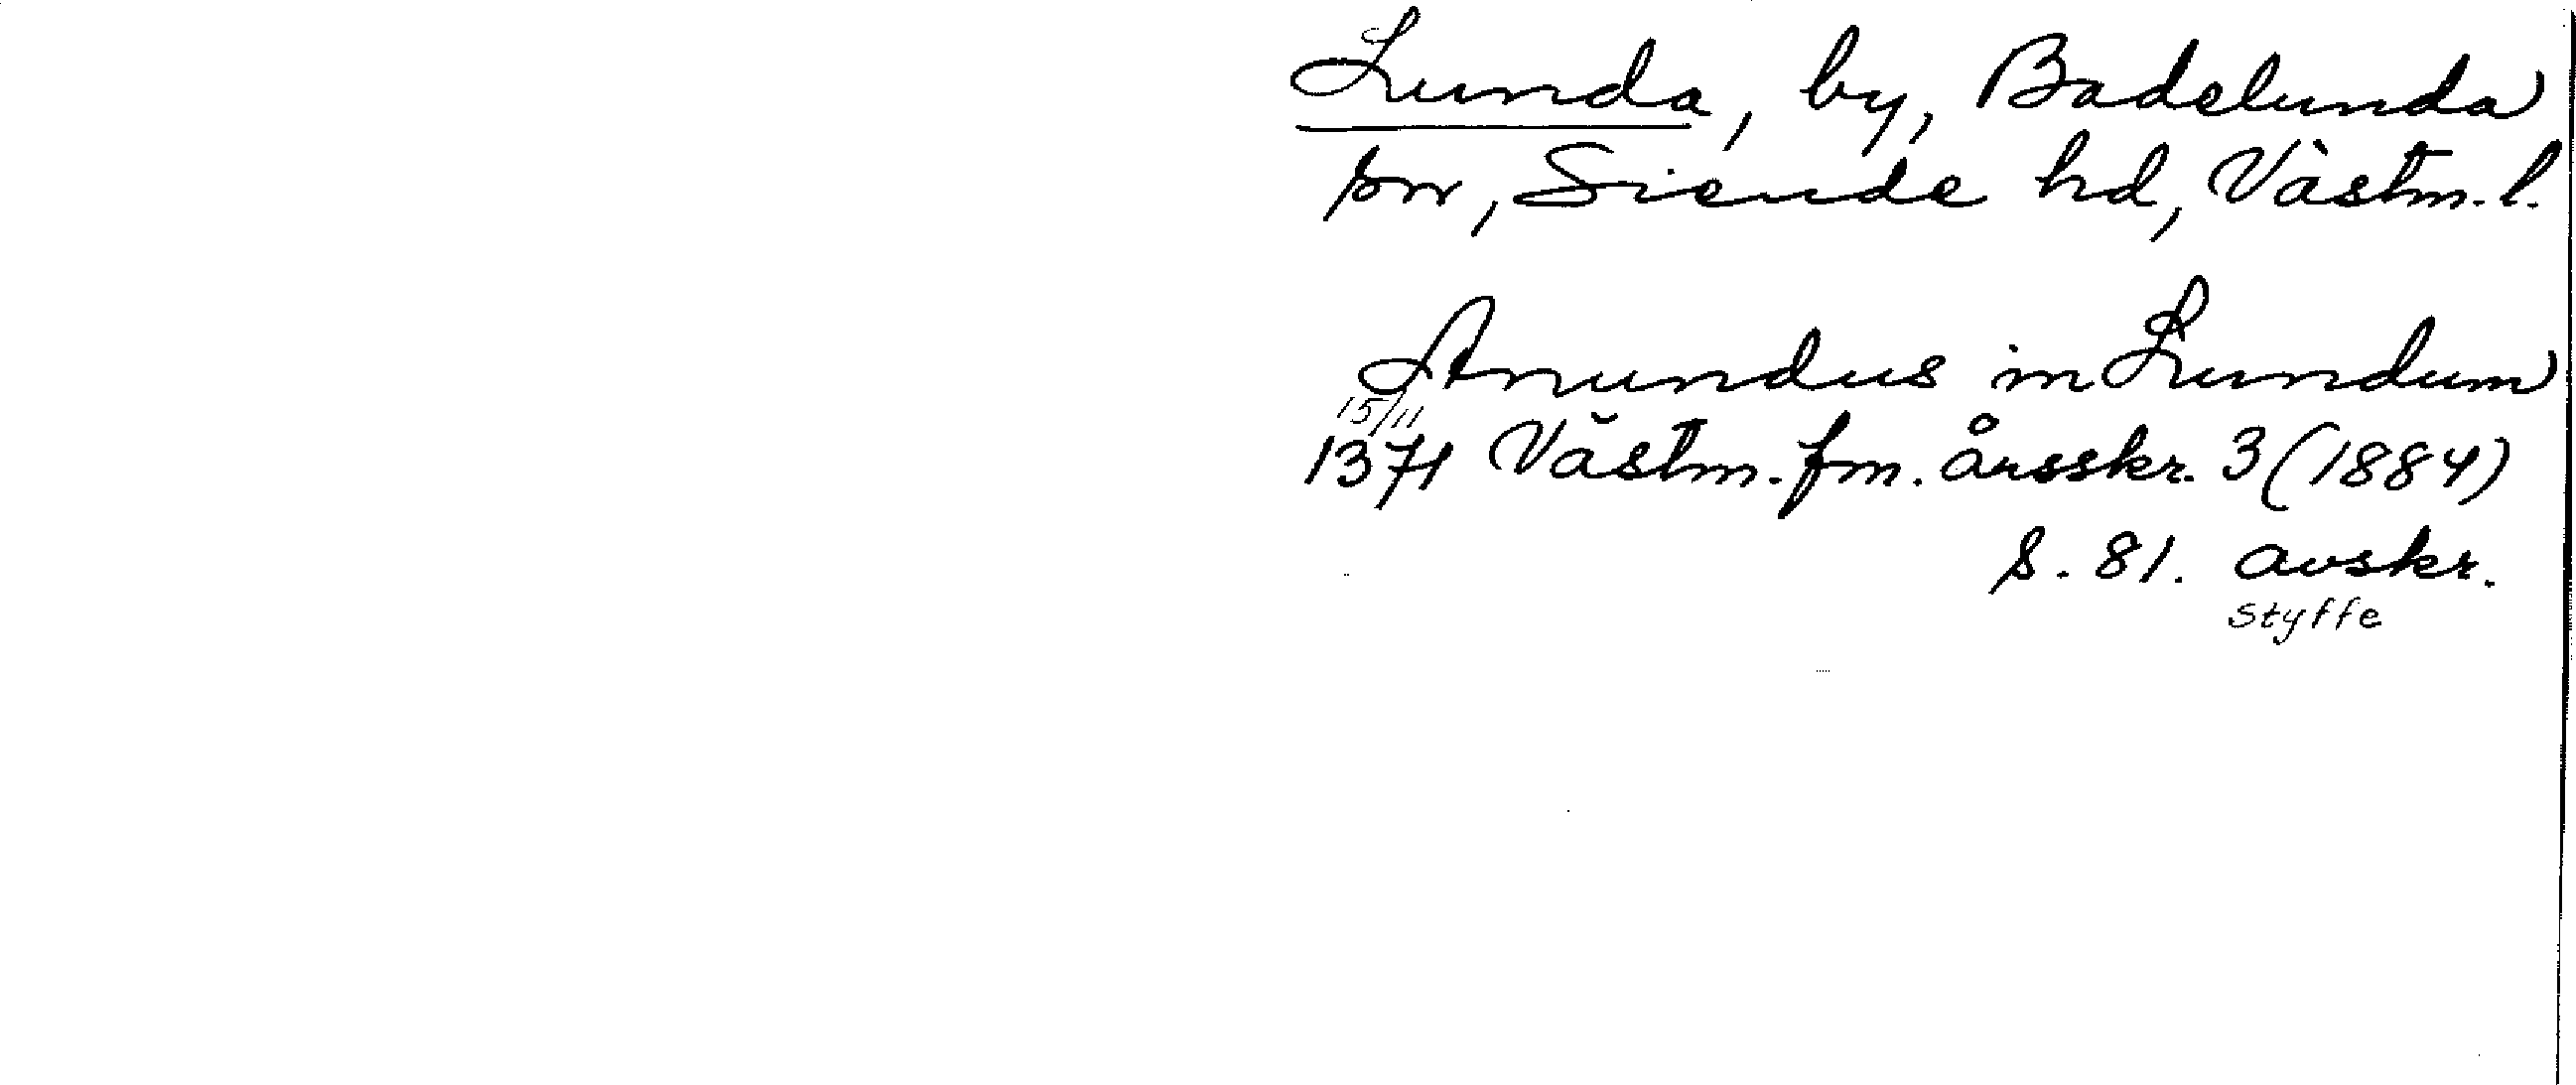 Lunda, by, Badelunda
sn, Siende hd, Västm. l.
Anundus in Lundum
15/11
1371 Västm. fm. årsskr. 3 (1884)
s. 81. avskr.
Styffe